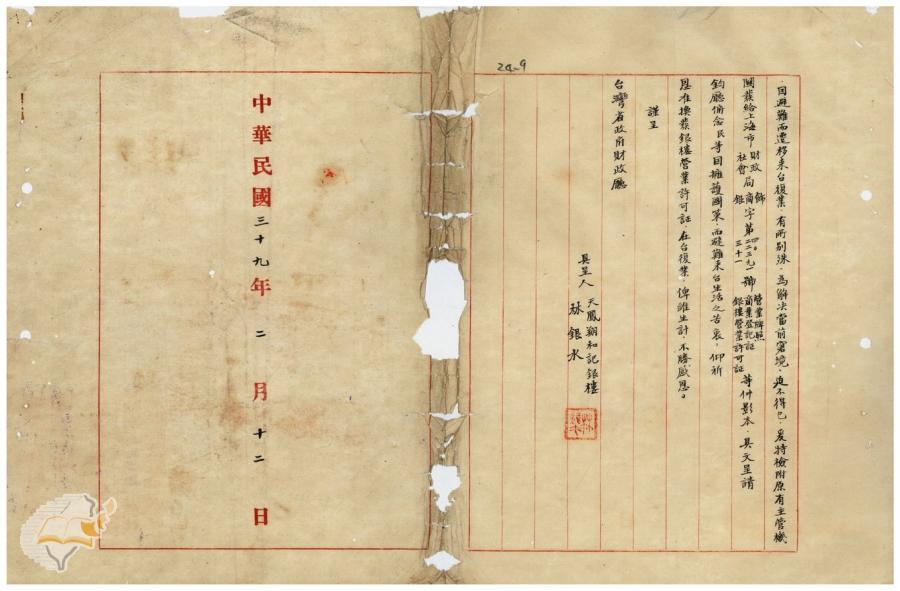 24-9
因避難而遷移來台復業,有所別殊,為解決當前窘境,迫不得已,爰特檢附原有主管機
關發給上海市財政社會局飾商銀字第 號營業牌照商業登記証銀樓營業許可証等件影本,具文呈請
鈞廳俯念民等因擁護國策,而避難來台生活之苦衷,仰祈
恩准換發銀樓營業許可証,在台復業,俾維生計,不勝感恩。
謹呈
台灣省政府財政廳
具呈人 天鳳翔和記銀樓
林銀水
中華民國三十九年二月十二日